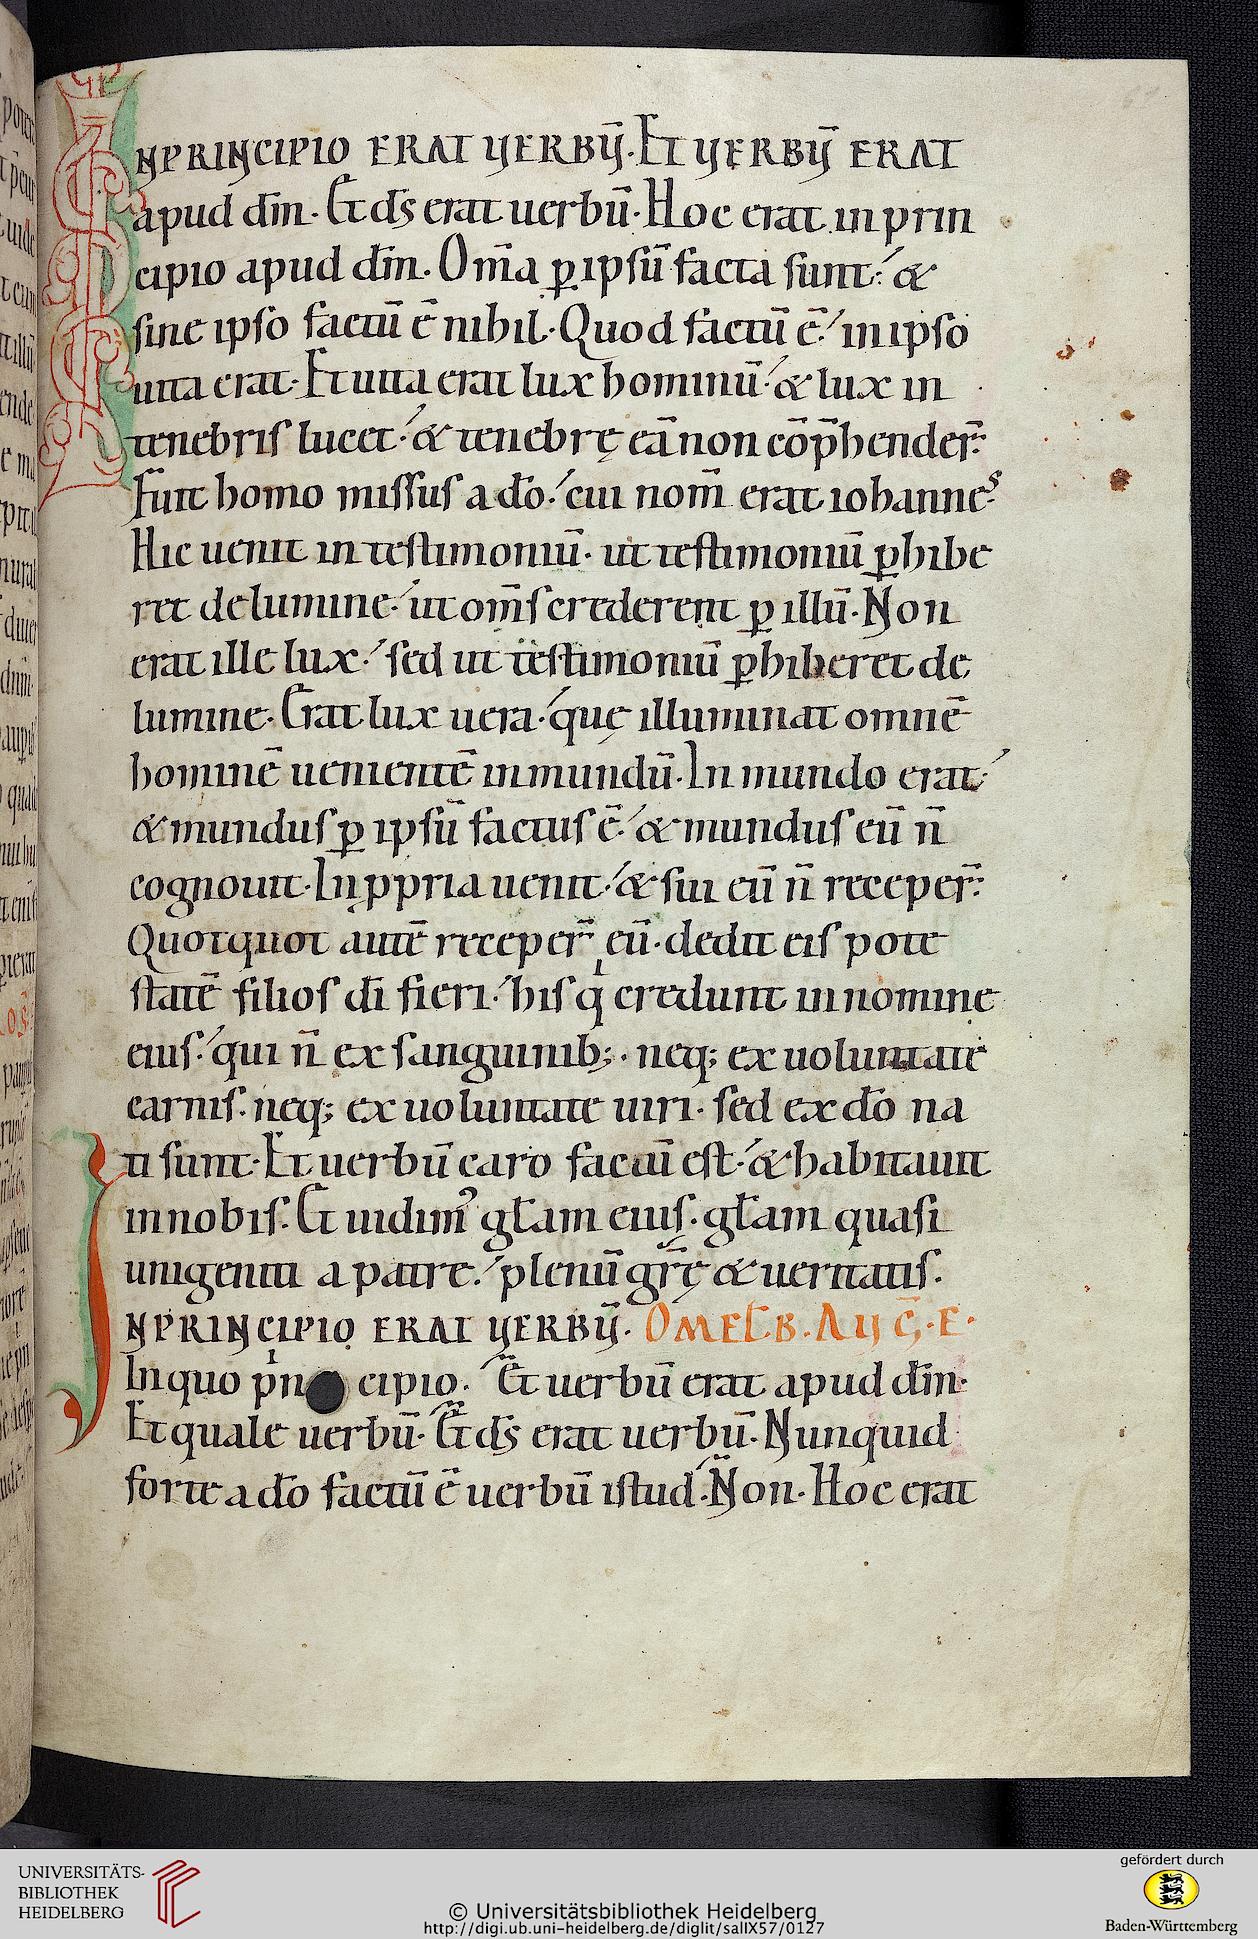 INPRINCIPIO ERAT VERBŪ. Et VERBŪ ERAT
apud dm̄. Et ds̄ erat uerbū. Hoc erat in prin
cipio apud dm̄. Om̄a ꝑ ipsū facta sunt. &
sine ipso factū ē nihil. Quod factū ē. in ipso
uita erat. Et uita erat lux hominū. & lux in
tenebris lucet. & tenebrę eā non cōp̄hender̄.
Fuit homo missus a do̅. cui nom̄ erat iohannes
Hic uenit in testimoniū. ut testimoniū ꝑhibe
ret de lumine. ut om̄s crederent ꝑ illū. Non
erat ille lux. sed ut testimoniū ꝑhiberet de
lumine. Erat lux uera. quę illuminat omnē
hominē uenientē in mundū. In mundo erat.
& mundus ꝑ ipsū factus ē. & mundus eū n̄
cognouit. In ꝓpria uenit. & sui eū n̄ receper̄.
Quotquot autē receper̄ eū. dedit eis pote
statē filios di̅ fieri. his qⁱ credunt in nomine
eius. qui n̄ ex sanguinib;. neq; ex uoluntate
carnis. neq; ex uoluntate uiri. sed ex do̅ na
ti sunt. Et uerbū caro factū est. & habitauit
in nobis. Et uidim᾽ gl̅am eius. gl̅am quasi
unigeniti a patre. plenū gr̄ę & ueritatis.
INPRINCIPIO ERAT VERBŪ. OMEL B. AUG̅. E.
In quo pⁱn cipio. Et uerbū erat apud dm̄.
Et quale uerbū. Et ds̄ erat uerbū. Nunquid
forte a do̅ factū ē uerbū istud. Non. Hoc erat
UNIVERSITÄTS-
BIBLIOTHEK
HEIDELBERG
© Universitätsbibliothek Heidelberg
http://digi.ub.uni-heidelberg.de/diglit/salIX57/0127
gefördert durch
Baden-Württemberg